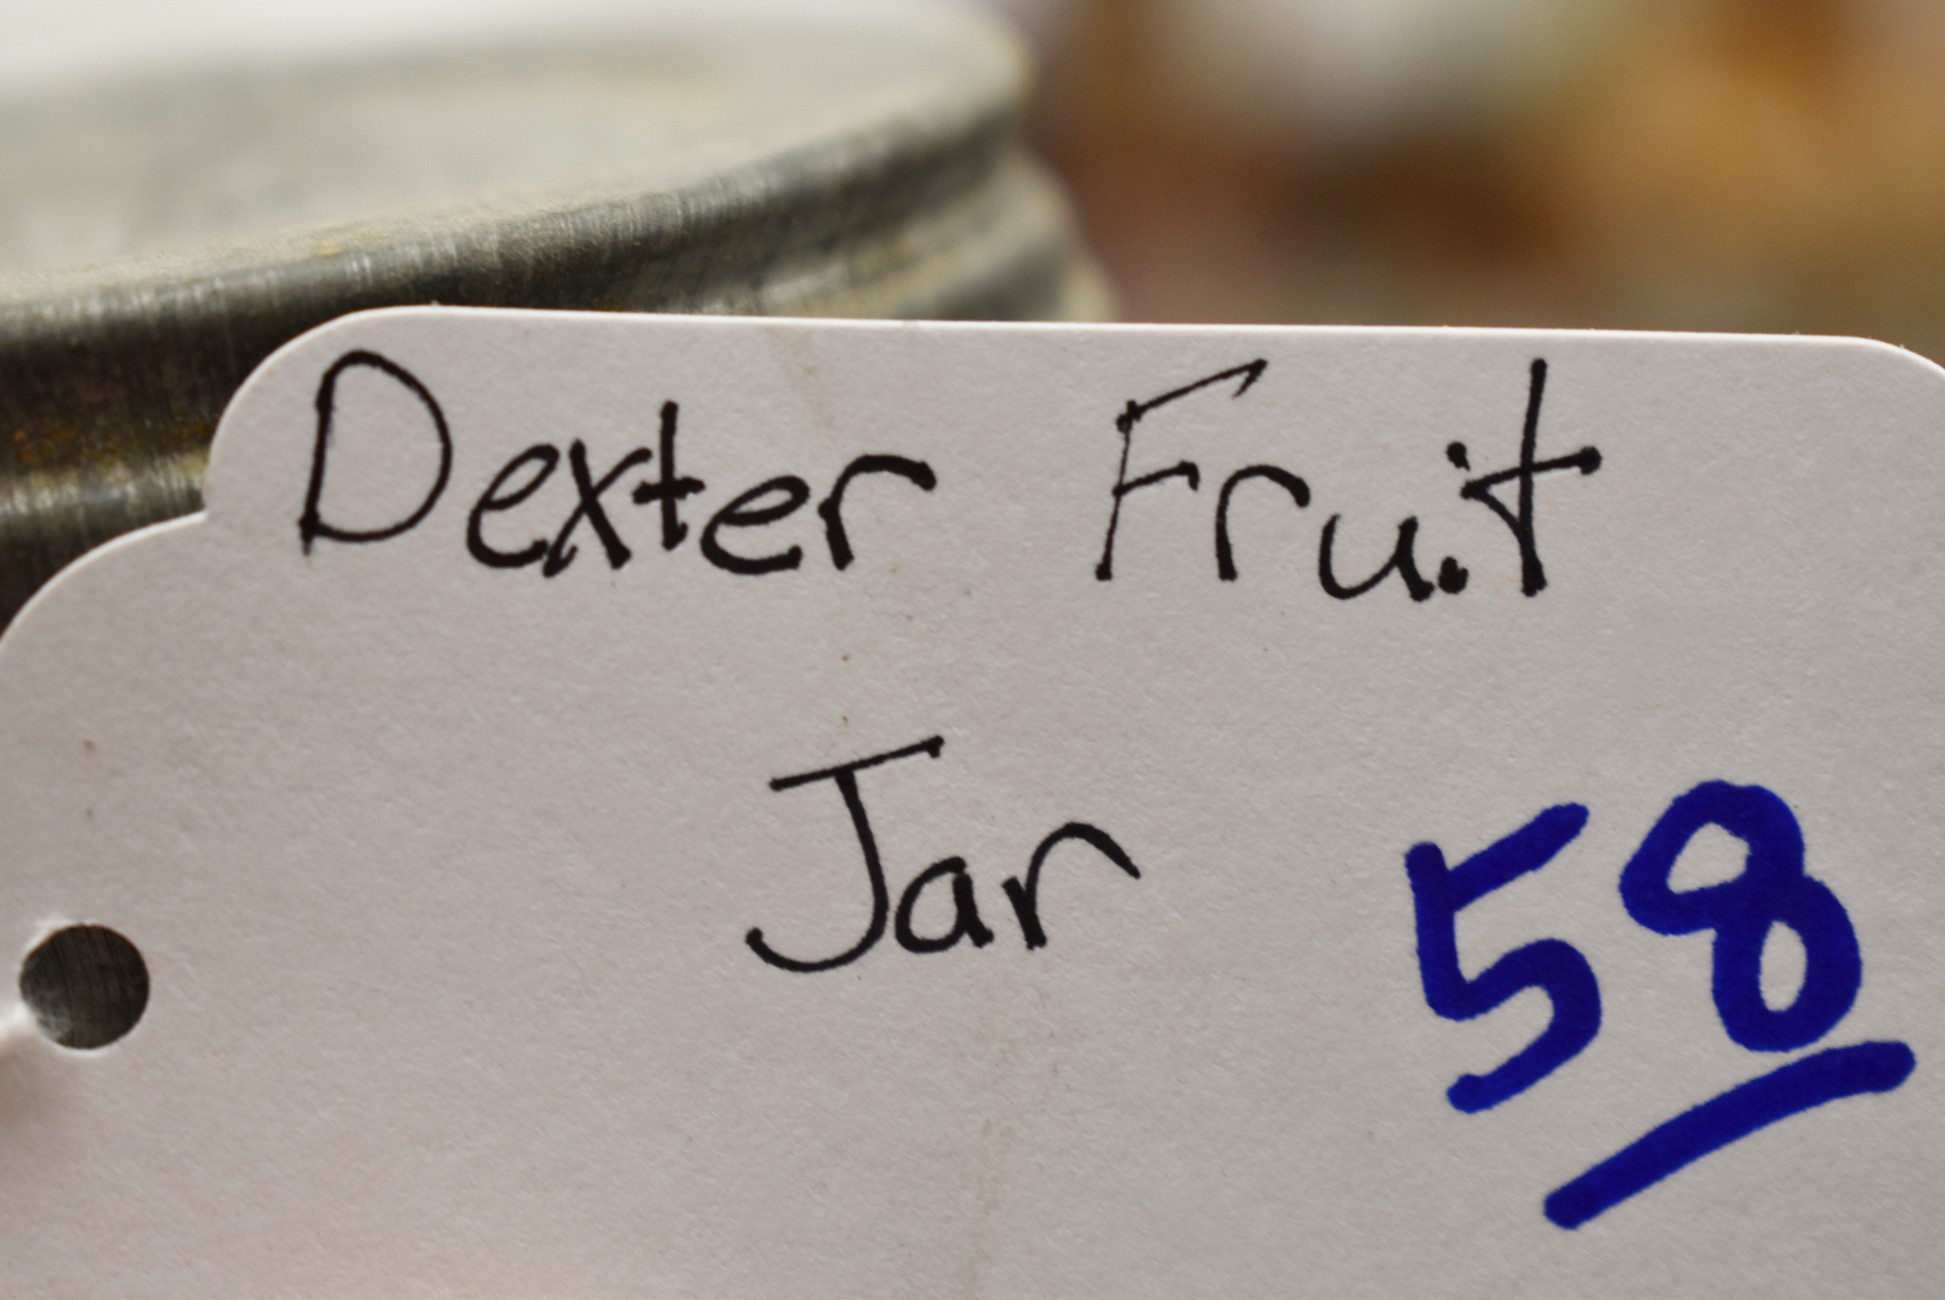 Dexter Fruit
Jar
58